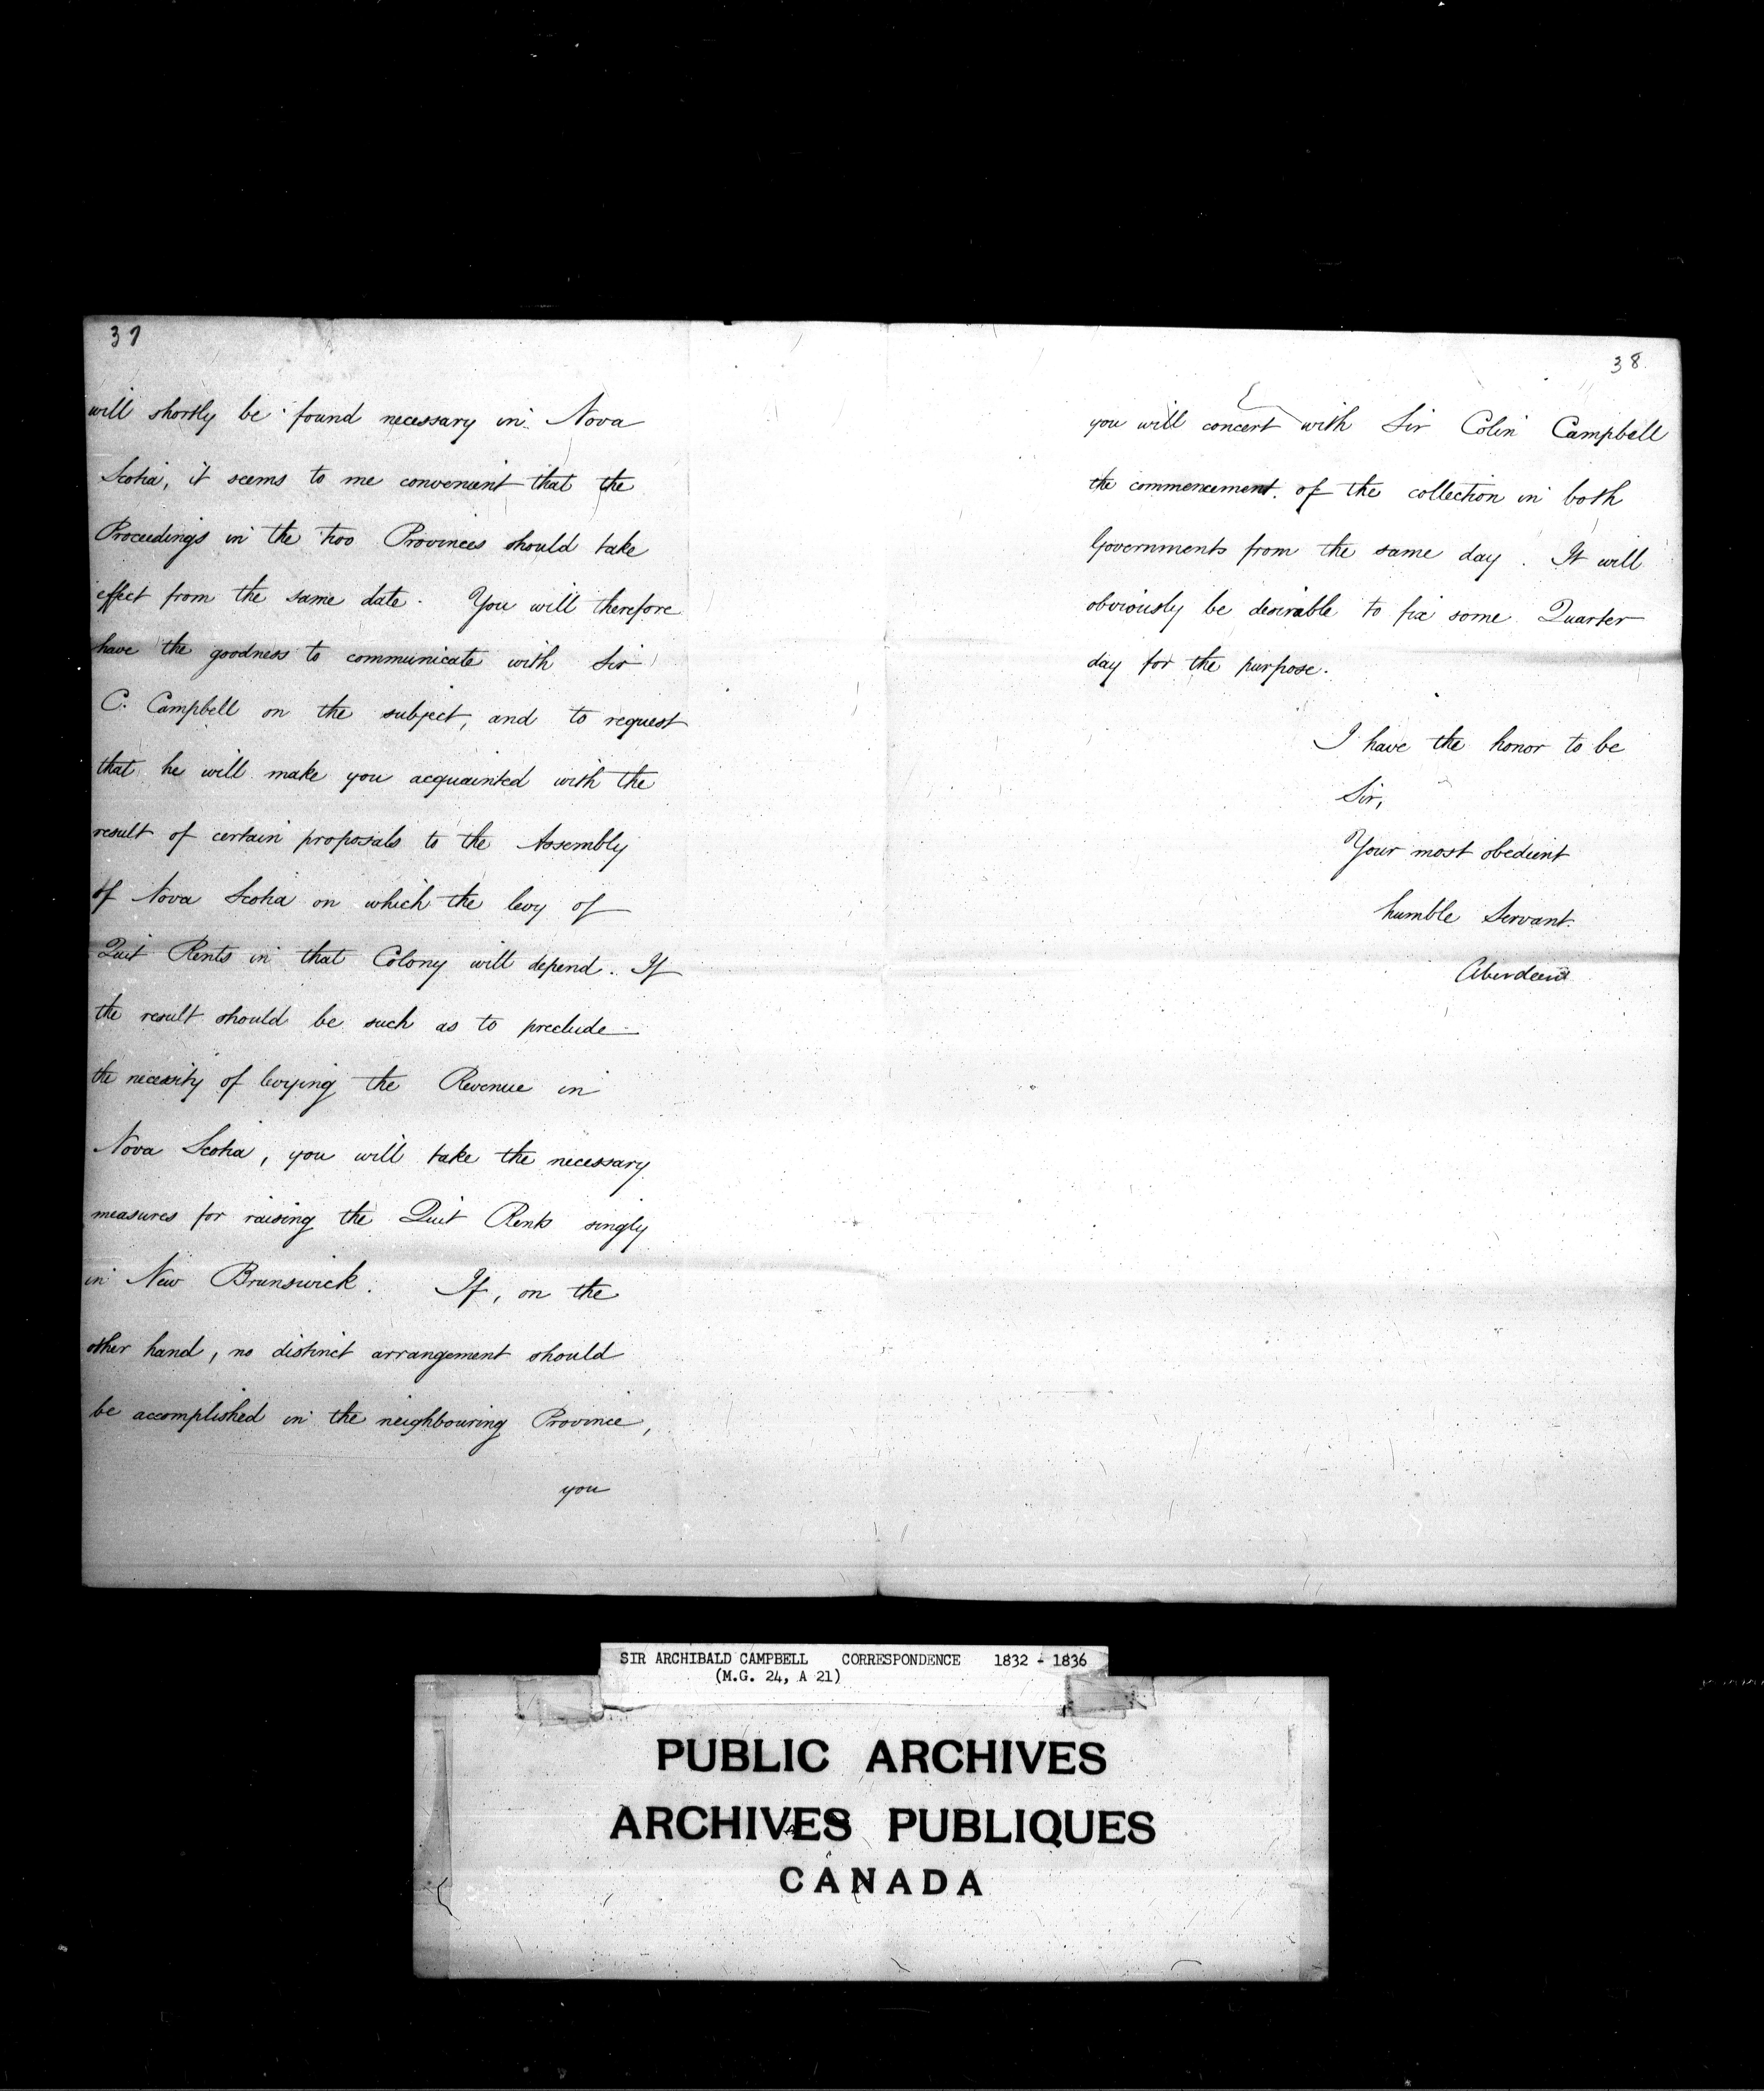 37
will shortly be found necessary in Nova
Scotia, it seems to me convenient that the
Proceedings in the two Provinces should take
effect from the same date. You will therefore
have the goodness to communicate with Sir
C. Campbell on the subject, and to request
that he will make you acquainted with the
result of certain proposals to the Assembly
of Nova Scotia on which the levy of
Quit Rents in that Colony will depend. If
the result should be such as to preclude
the necessity of levying the Revenue in
Nova Scotia, you will take the necessary
measures for raising the Quit Rents singly
in New Brunswick. If, on the
other hand, no distinct arrangement should
be accomplished in the neighbouring Province,
you
38
you will concert with Sir Colin Campbell
the commencement of the collection in both
Governments from the same day. It will
obviously be desirable to fix some Quarter
day for the purpose.
I have the honor to be
Sir,
Your most obedient
humble Servant.
Aberdeen
SIR ARCHIBALD CAMPBELL CORRESPONDENCE 1832 - 1836
(M.G. 24, A 21)
PUBLIC ARCHIVES
ARCHIVES PUBLIQUES
CANADA